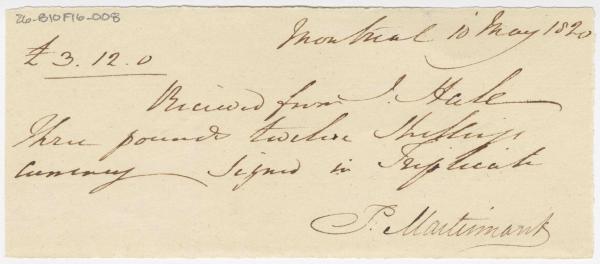 26-B10F16-008
Montreal 10 May 1820
£ 3.12.0
Received from J. Hale
Three pounds twelve Shillings
currency Signed in Triplicate
P. Martimont